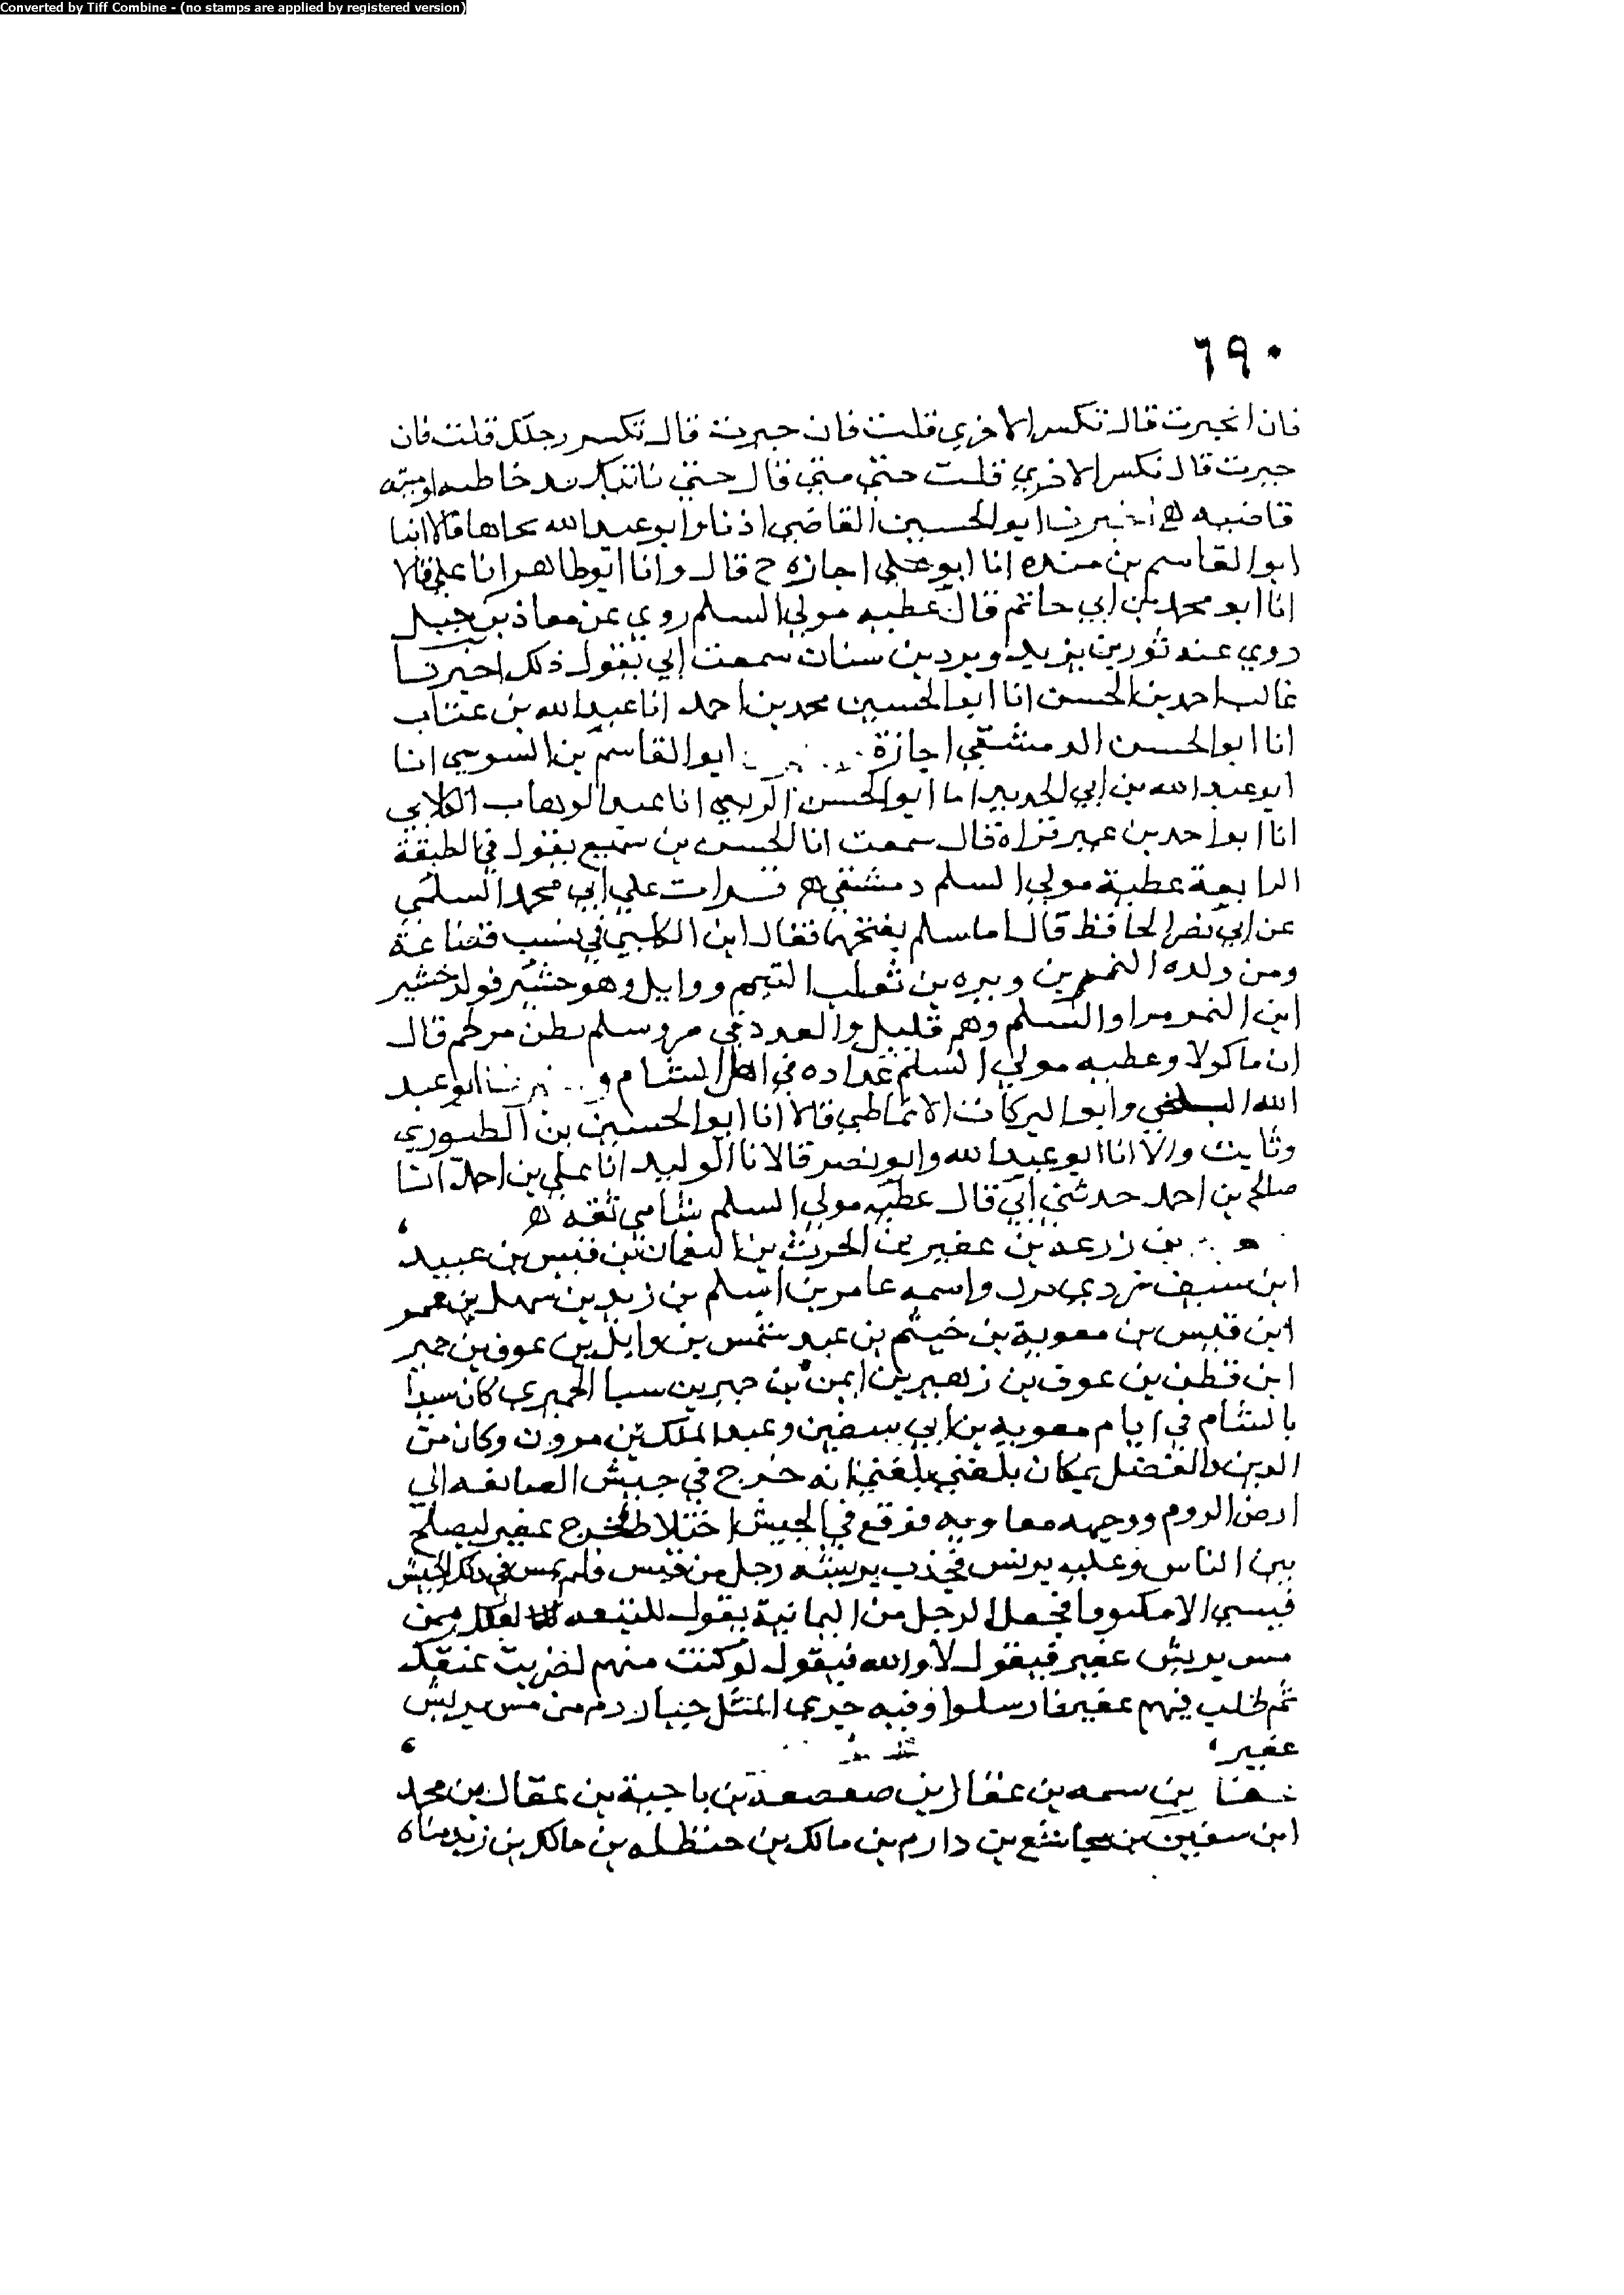 Converted by Tiff Combine - (no stamps are applied by registered version)
٦٩٠
فان انجبرت قال تكسر الاخري قلت فان جبرت قال تكسر رجلك قلت فان
جبرت قال تكسر الاخري قلت حتي متي قال حتي تاتيك يد خاطيه او ميته
قاضيه ابو الحسين القاضي اذنا وابو عبد الله قالا انبا
ابو القاسم بن منده انا ابو علي اجازه ح قال وانا ابو طاهر انا علي قالا
انا ابو محمد بن ابي حاتم قال عطيه مولي السلم روي عن معاذ بن جبل
روي عنه ثور بن يزيد وبرد بن سنان سمعت ابي يقول ذلك اخبرنا
غالب احمد بن الحسن انا ابو الحسين محمد بن احمد انا عبد الله بن عتاب
انا ابو الحسن الدمشقي اجازة ابو القاسم بن السوسي انا
ابو عبد الله بن ابي الحديد انا ابو الحسن الربعي انا عبد الوهاب الكلابي
انا ابو احمد بن عمير قراة قال سمعت ابا الحسن بن سميع يقول في الطبقة
الرابعة عطية مولي السلم دمشقي قرات علي ابي محمد السلمي
عن ابي نصر الحافظ قال اما سلم بفتحها فقال ابن الكلبي في نسب قضاعة
ومن ولده النمر بن وبره بن ثعلب التيم ووايل وهو خشين فولد خشين
ابن النمر مرا والسلم وهم قليل والعدد في مر وسلم بطن من لخم قال
ابن ماكولا وعطيه مولي السلم عداده في اهل الشام ابو عبد
الله البلخي وابو البركات الانماطي قالا انا ابو الحسين بن الطيوري
وثابت قالا انا ابو عبد الله وابو نصر قالا نا الوليد انا علي بن احمد انا
صالح بن احمد حدثني ابي قال عطيه مولي السلم شامي ثقه
بن زرعه بن عفير بن الحرث بن النعمان بن قيس بن عبيد
ابن سيف بن ذي يزن واسمه عامر بن اسلم بن زيد بن سهل بن عمرو
ابن قيس بن معوية بن خيثم بن عبد شمس بن وايل بن عوف بن حمير
ابن قطن بن عوف بن زهير بن ايمن بن حمير بن سبا الحميري كان سيدا
بالشام في ايام معويه بن ابي سفين وعبد الملك بن مرون وكان من
الدين والفضل بمكان بلغني بلغني انه خرج في جيش الصائفه الي
ارض الروم ووجهه معاويه فوقع في الجيش اختلاط فخرج عفير ليصلح
بين الناس وعليه برنس فجذب برنسه رجل من قيس فلم يمس في ذلك الجيش
قيسي الا مكتوفا فجعل الرجل من اليمانية يقول للنبعه لعلك ممن
مس برنس عفير فيقول لا والله فيقول لو كنت منهم لضربت عنقك
ثم طلب فيهم عفير فارسلوا وفيه جري المثل من مس برنس
عفير
بن سمه بن عقال بن صعصعة بن ناجية بن عقال بن محمد
ابن سفين بن مجاشع بن دارم بن مالك بن حنظله بن مالك بن زيد مناه